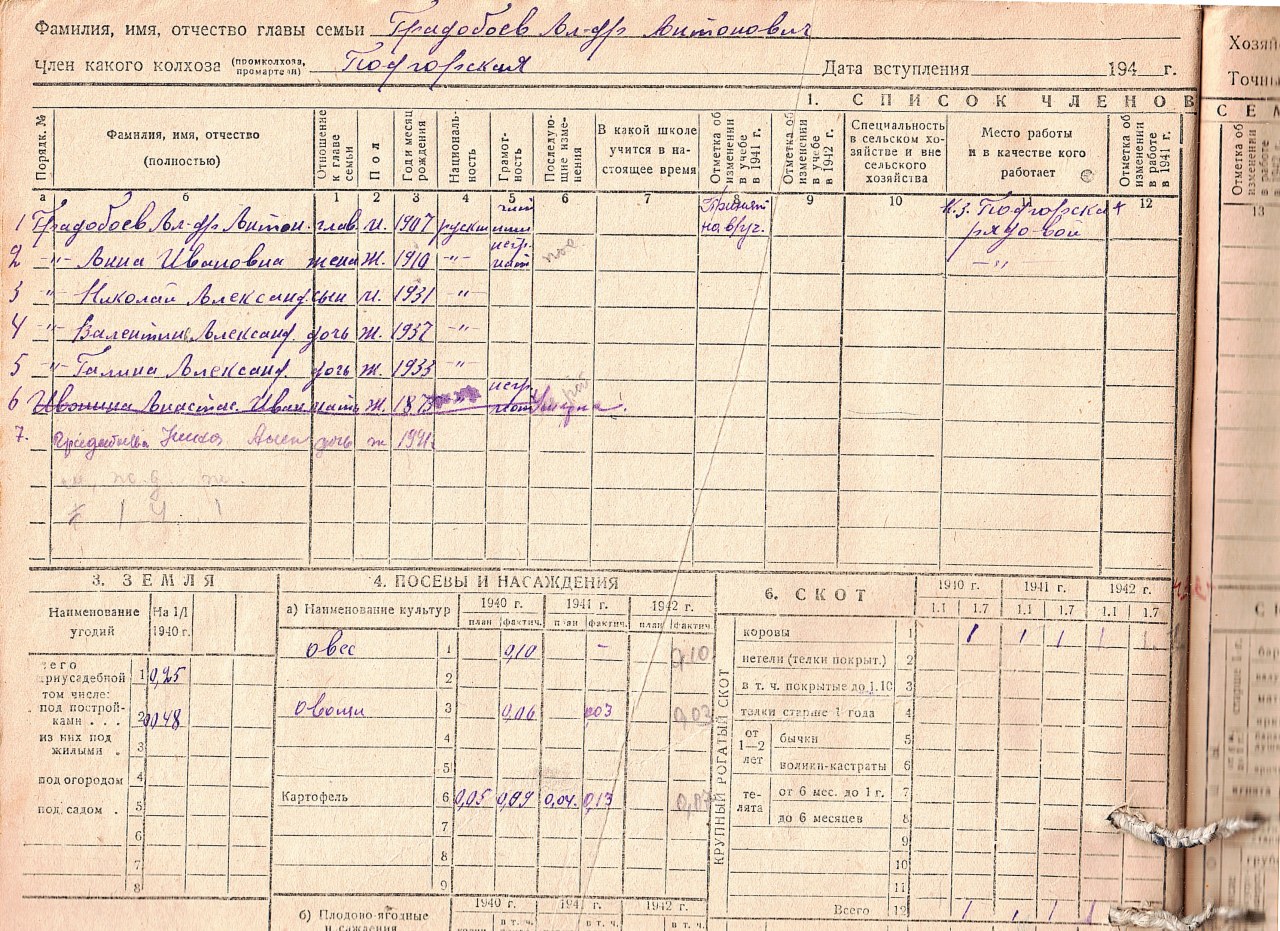 Фамилия, имя, отчество главы семьи Градобоев Ал-др Антонович
Член какого колхоза (промколхоза, промартели) Подгорская Дата вступления 194 г.
1. СПИСОК ЧЛЕНОВ
Порядк. № Фамилия, имя, отчество (полностью) Отношение к главе семьи Пол Год и месяц рождения Национальность Грамотность Последующие изменения В какой школе учится в настоящее время Отметка об изменении в учебе в 1941 г. Отметка об изменении в учебе в 1942 г. Специальность в сельском хозяйстве и вне сельского хозяйства Место работы и в качестве кого работает Отметка об изменении в работе в 1941 г.
а б 1 2 3 4 5 6 7 8 9 10 12
1 Градобоев Ал-др Антон. глав. м. 1907 русск к.з. Подгорская рядовой
2 -"- Анна Ивановна жена ж. 1910 -"- негр. -"-
3 -"- Николай Александ. сын м. 1931 -"-
4 -"- Валентин Александ. дочь ж. 1937 -"-
5 -"- Галина Александ. дочь ж. 1933 -"-
6 Анастас. Иван. мать ж. 187 негр. Умерла!
7. дочь ж 1941
3. ЗЕМЛЯ
Наименование угодий На 1/I 1940 г.
приусадебной 1 0,25
том числе:
под постройками . . . 2 0,048
из них под жилыми . 3
под огородом 4
под садом . 5
6
7
8
4. ПОСЕВЫ И НАСАЖДЕНИЯ
а) Наименование культур 1940 г. 1941 г. 1942 г.
план фактич. план фактич. план фактич.
овес 1 0,10 - 0,10
2
овощи 3 0,06 0,03 0,03
4
5
Картофель 6 0,05 0,09 0,04 0,13
7
8
9
1940 г. 1941 г. 1942 г.
б) Плодово-ягодные насаждения
в т. ч. в т. ч. в т. ч.
6. СКОТ
1940 г. 1941 г. 1942 г.
1.1 1.7 1.1 1.7 1.1 1.7
КРУПНЫЙ РОГАТЫЙ СКОТ
коровы 1 1 1 1 1 1
нетели (телки покрыт.) 2
в т. ч. покрытые до 1.10 3
телки старше 1 года 4
от 1—2 лет бычки 5
волики-кастраты 6
телята от 6 мес. до 1 г. 7
до 6 месяцев 8
9
10
11
Всего 12 1 1 1 1
Отметка об изменении
13